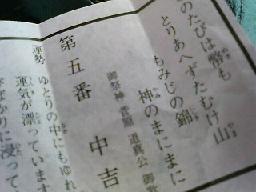 のたびは幣も
とりあへずたむけ山
もみじの錦
神のまにまに
御祭神 菅原道真公 御歌
第五番 中吉
運勢 ゆとりの中にもゆれ
運気が漂っています
ばかりに浸って、